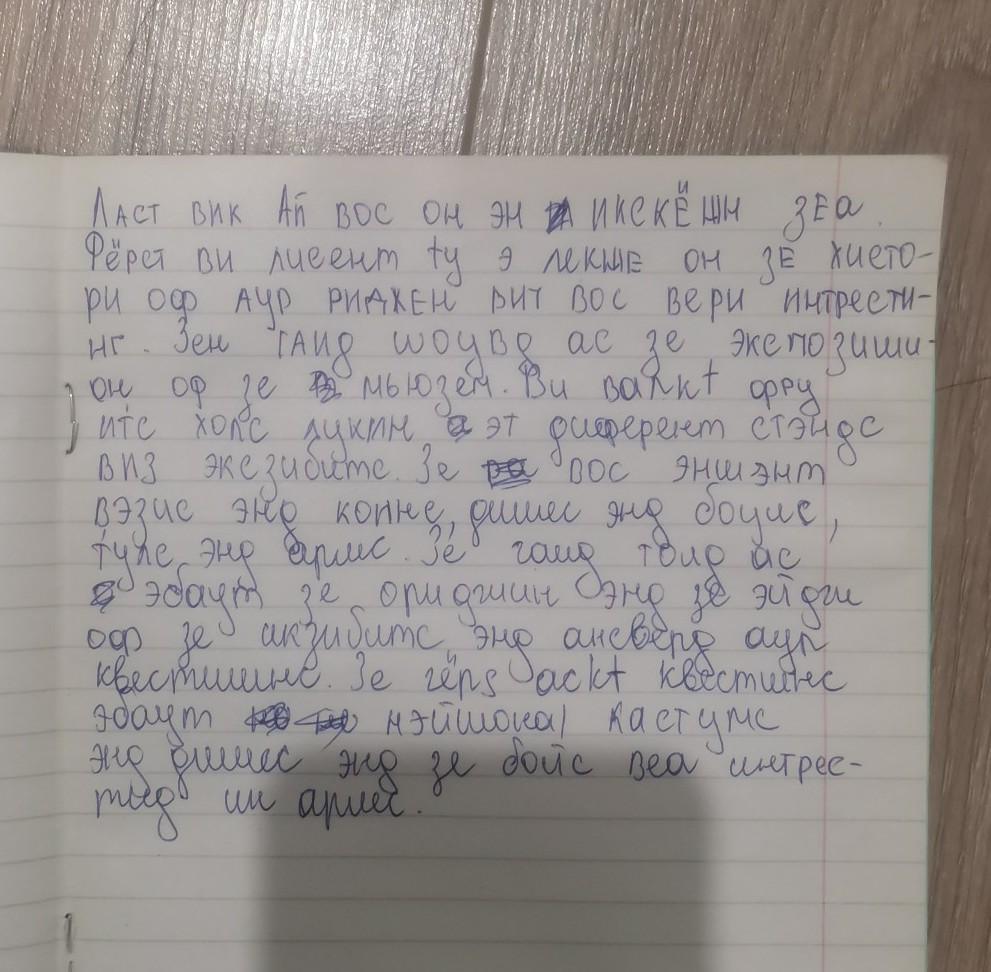 Ласт вик Ай вос он эн икскёшн зеа.
Фёрст ви лисент tу э лекше он зе хисто-
ри оф аур риджен вич вос вери интрести-
нг. Зен гаид шоувд ас зе экспозиши-
он оф зе мьюзем. Ви валкt фру
итс холс лукин эт диферент стэндс
виз эксзибитс. Зе вос эншэнт
вэзис энд коинс, дишес энд боулс,
тулс энд армс. Зе гаид толд ас
эбаут зе ориджин энд зе эйджи
оф зе икзибитс энд ансверд аур
квестшинс. Зе гёрлs аскt квестшинс
эбаут нэйшонал кастумс
энд дишес энд зе бойс веа интрес-
тид ин армс.